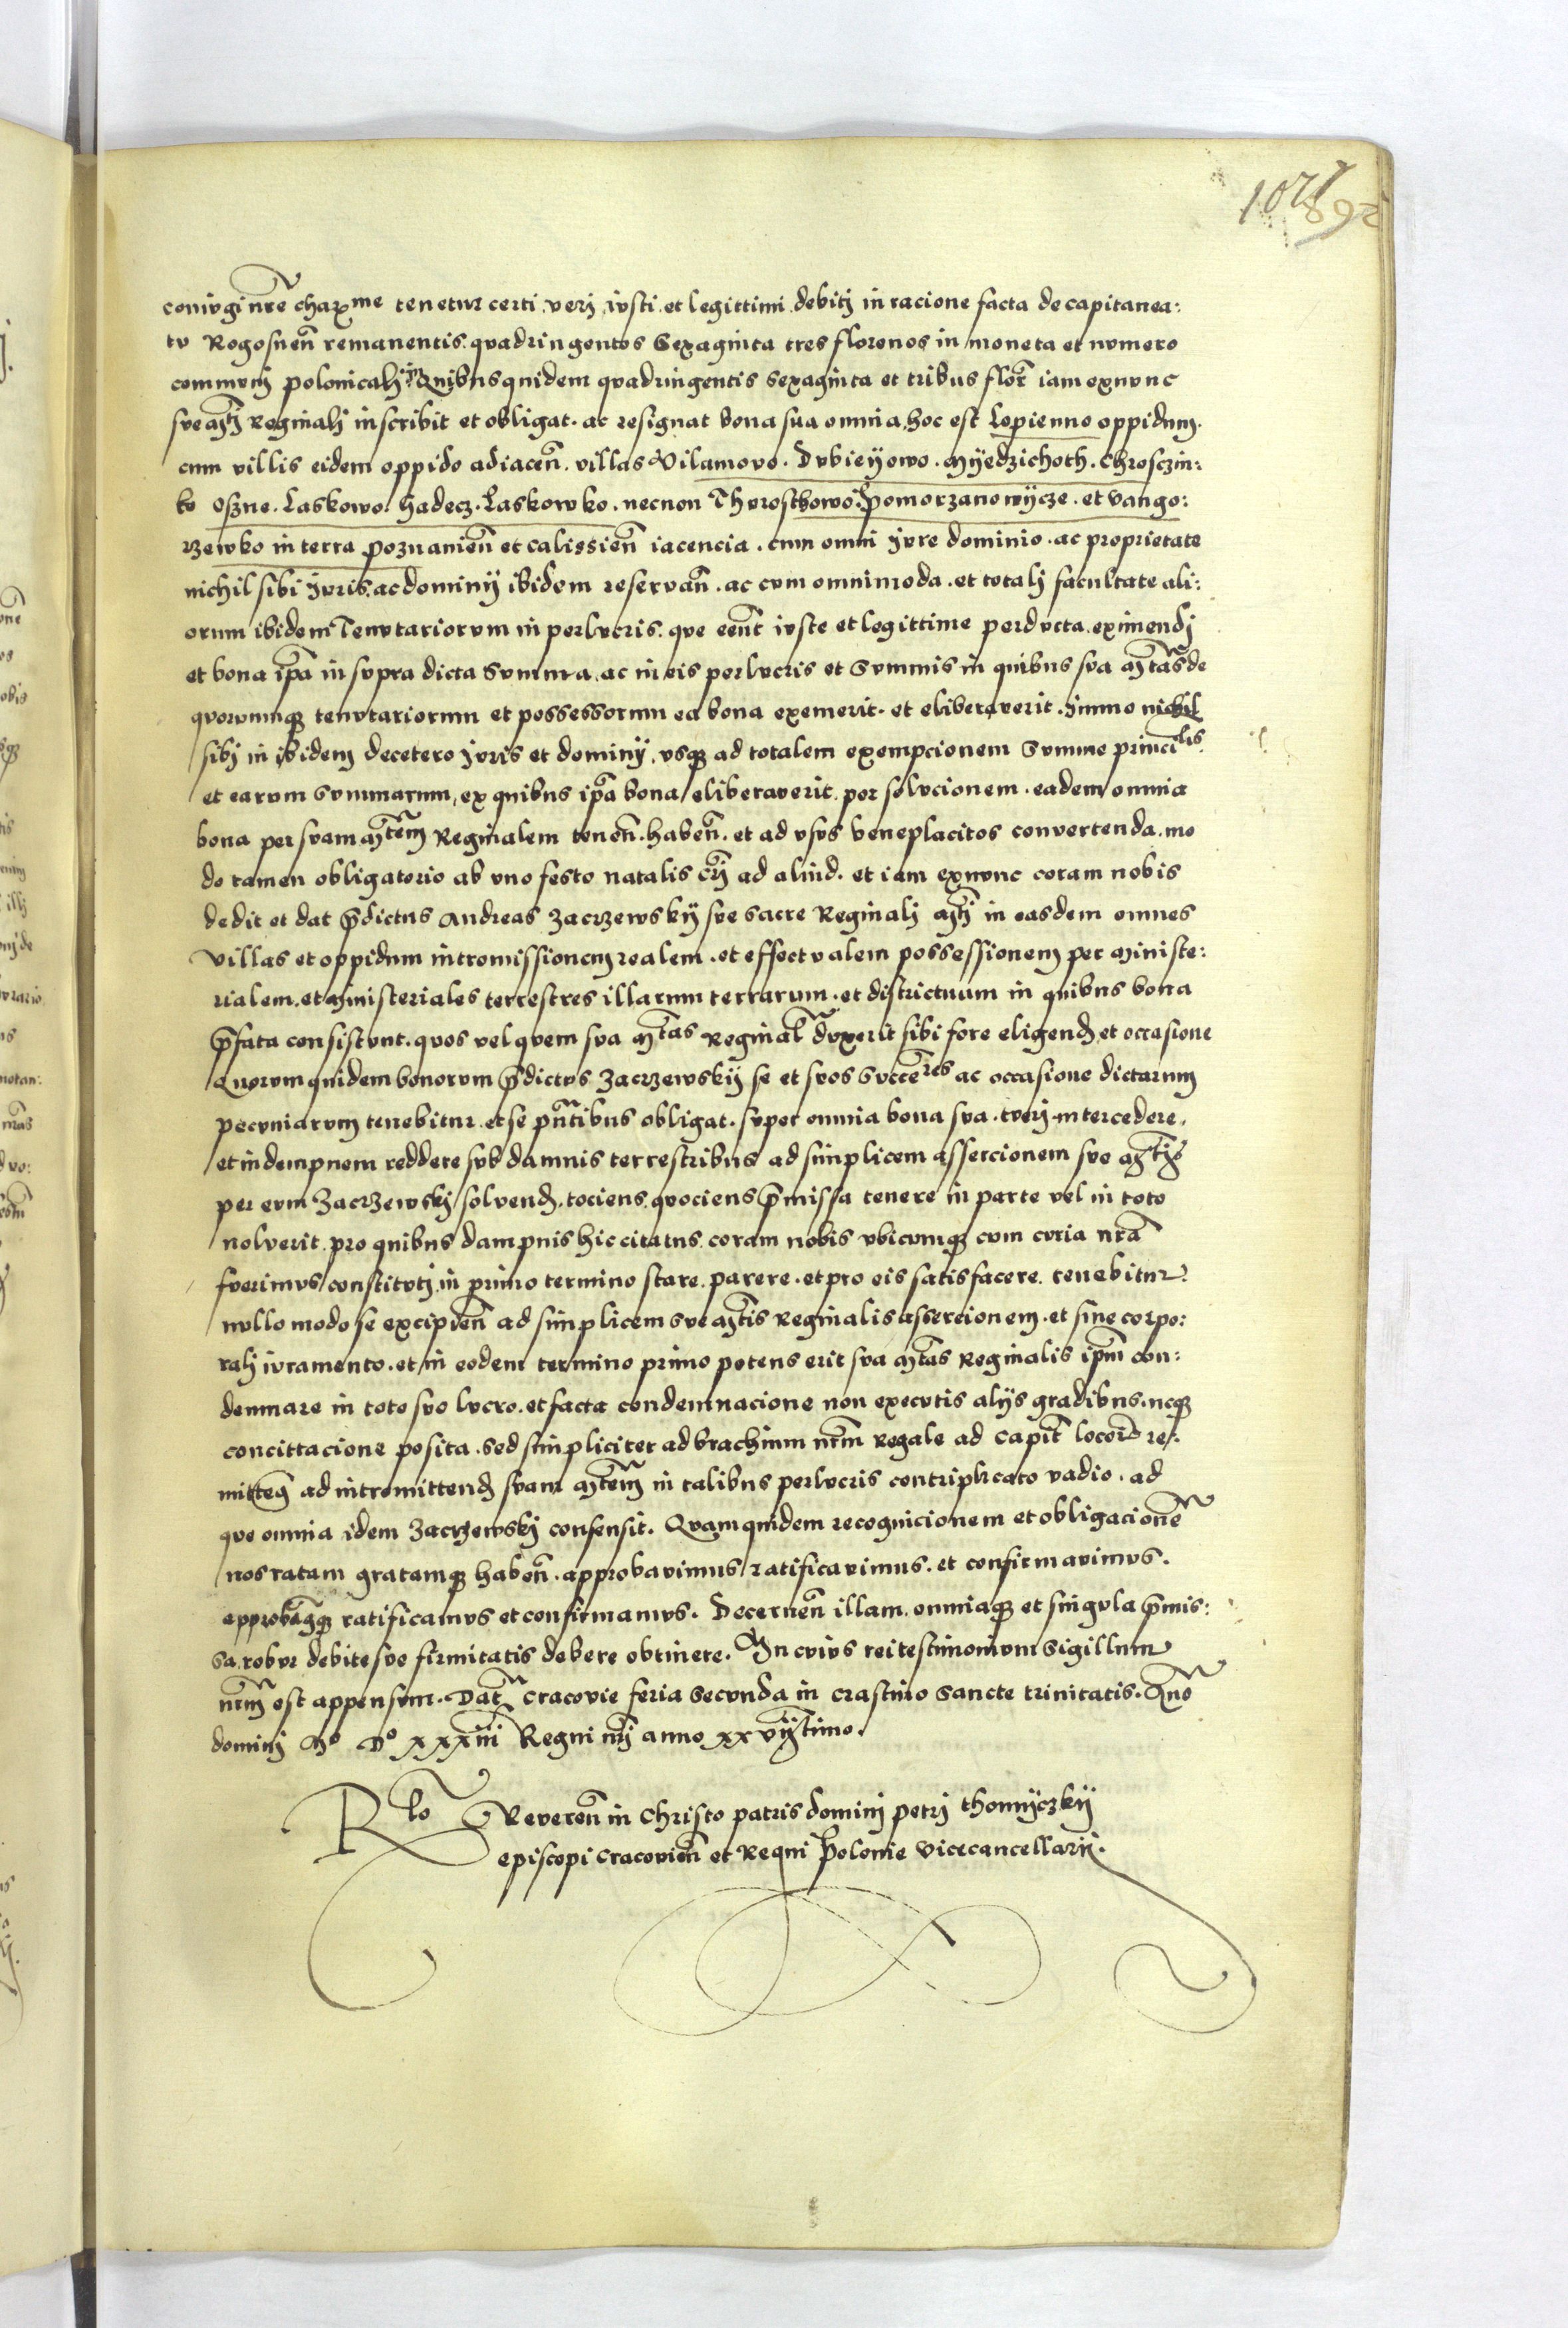 1071
892
coniugi nr̃e char̃me tenetur certi veri iusti et legittimi debitj in racione facta de capitanea:
tu Rogosnen̄ remanentis. quadringentos sexaginta tres florenos in moneta et numero
communj polonicalj. Quibus quidem quadringentis sexaginta et tribus flor̄ iam exnunc
sue M̄tj Reginalj inscribit et obligat. ac resignat bona sua omnia, hoc est Lopienno oppidum.
cum villis eidem oppido adiacen̄. villas Vilamovo. Dubieyowo. Myedzichoth. Chrosczin:
ko Oszne. Laskowo. hadecz. Laskowko. necnon Thvrosthowo. Pomorzanowycze. et Vango:
rzewko in terra Poznanien̄ et Calissien̄ iacencia. cum omni jure dominio. ac proprietate
nichil sibi juris. ac dominij ibidem reservan̄. ac cum omnimoda. et totalj facultate ali:
orum ibidem Tenutariorum in perlucris. que een̄t iuste et legittime perducta. eximendj
et bona ip̄a in supra dicta summa. ac in eis perlucris et summis in quibus sua M̄tas de
quorumq̨ tenutariorum et possessorum ea bona exemerit. et eliberaverit. Immo nichil
sibj in ibidem decetero juris et dominij. usq̨ ad totalem exempcionem summe principalis
et earum summarum, ex quibus ip̄a bona eliberaverit. per solucionem. eadem omnia
bona per suam M̄tem Reginalem tenen̄. haben̄. et ad usus beneplacitos convertenda. mo
do tamen obligatorio ab uno festo natalis crj̄ ad aliud. et iam exnunc coram nobis
dedit et dat p̄dictus Andreas Zacrzewskij sue sacre Reginalj M̄tj in easdem omnes
villas et oppidum intromissionem realem. et effectualem possessionem per ministe:
rialem. et ministeriales terrestres illarum terrarum. et districtuum in quibus bona
p̄fata consistunt. quos vel quem sua M̄tas Reginal̄ duxerit sibi fore eligend̄. et occasione
Quorum quidem bonorum p̄dictus Zacrzewskij se et suos succēres ac occasione dictarum
pecuniarum tenebitur. et se pn̄tibus obligat. super omnia bona sua. tuerj. intercedere.
et indempnem reddere sub damnis terrestribus ad simplicem assercionem sue M̄tis
per eum Zacrzewskj solvend̄. tociens quociens p̄missa tenere in parte vel in toto
noluerit. pro quibus dampnis hic citatus. coram nobis ubicumq̨ cum curia nr̄a
fuerimus constitutj. in primo termino stare. parere. et pro eis satisfacere. tenebitur.
nullo modo se excipien̄ ad simplicem sue M̄tis Reginalis assercionem. et sine corpo:
ralj iuramento. et in eodem termino primo potens erit sua M̄tas Reginalis ip̄m con:
demnare in toto suo lucro. et facta condemnacione non executis alijs gradibus. neq̨
concittacione posita. sed simpliciter ad brachium nr̄m Regale ad Capit̄ locor̄ re:
mitten̄ ad intromittend̄ suam M̄tem in talibus perlucris contriplicato vadio. ad
que omnia idem Zacrzewskj consensit. Quam quidem recognicionem et obligacionē
nos ratam gratamq̨ haben̄. approbavimus, ratificavimus. et confirmavimus.
approbāmq̨ ratificamus et confirmamus. Decernen̄ illam. omniaq̨ et singula p̄mis:
sa. robur debite sue firmitatis debere obtinere. In cuius rei testimonium sigillum
nr̄m est appensum. Dat̄ Cracovie feria secunda in crastino sancte trinitatis. Anō
dominj Mᵒ Dᵒ xxxiii Regni nr̄j anno xxvijtimo.
Rlo Reveren̄ in Christo patris dominj petrj thomyczkij
episcopi Cracovien̄ et Regni Polonie Vicecancellarij.